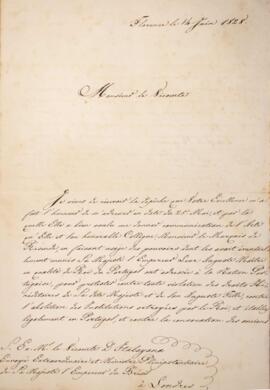 Florence le 14 Juin 1828.
Monsieur le Vicomte
Je viens de recevoir la dépêche que Votre Excellence m'a
fait l'honneur de m'adresser en date du 28 Mai, et par la
quelle Elle a bien voulu me donner communication de l'Acte
qu'Elle et son honorable Collègue Monsieur le Marquis de
Rezende, en faisant usage des pouvoirs dont les avait
munis Sa Majesté l'Empereur leur Auguste Maître
en qualité de Roi de Portugal ont adressé à la Nation Por-
tugaise, pour protester contre toute violation des droits
de Sa dite Majesté et de Son Auguste Fille, contre
l'abolition des Institutions octroyées par le Roi, et établies
légalement en Portugal et contre la convocation des anciens
S. Ex. M. le Vicomte D'Itabayana
Envoyé Extraordinaire et Ministre Plénipotentiaire
de Sa Majesté l'Empereur du Brésil
à Londres